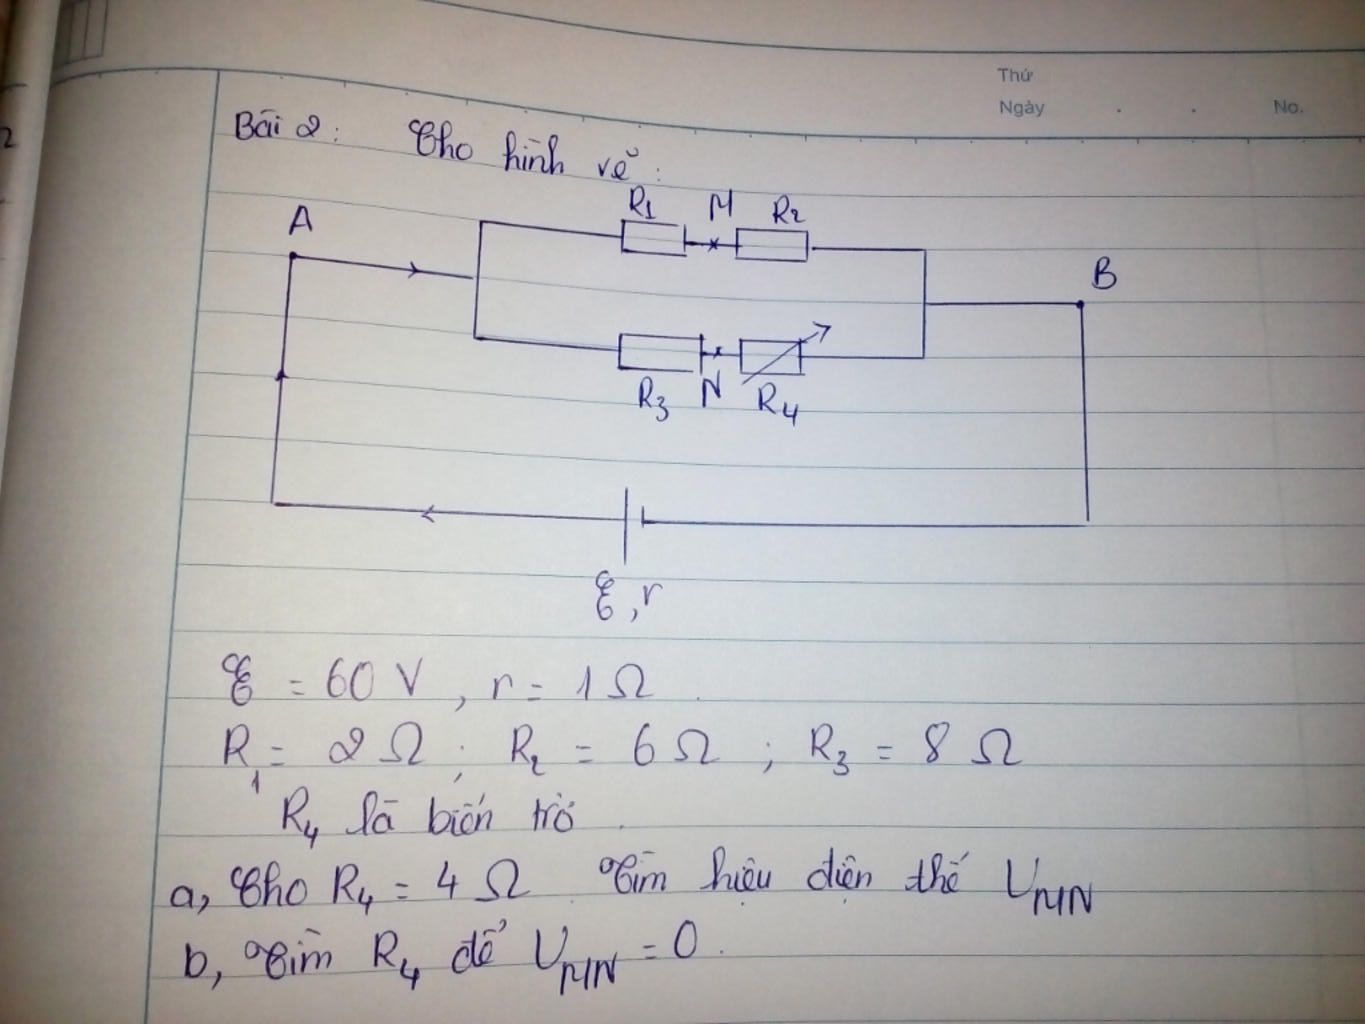 Thứ
Ngày . . No.
2
Bài 2: Cho hình vẽ:
R1 M R2
A
B
R3 N R4
ℰ, r
ℰ = 60 V, r = 1 Ω.
R1 = 2 Ω; R2 = 6 Ω; R3 = 8 Ω
R4 là biến trở.
a, Cho R4 = 4 Ω Tìm hiệu điện thế UMN
b, Tìm R4 để UMN = 0.